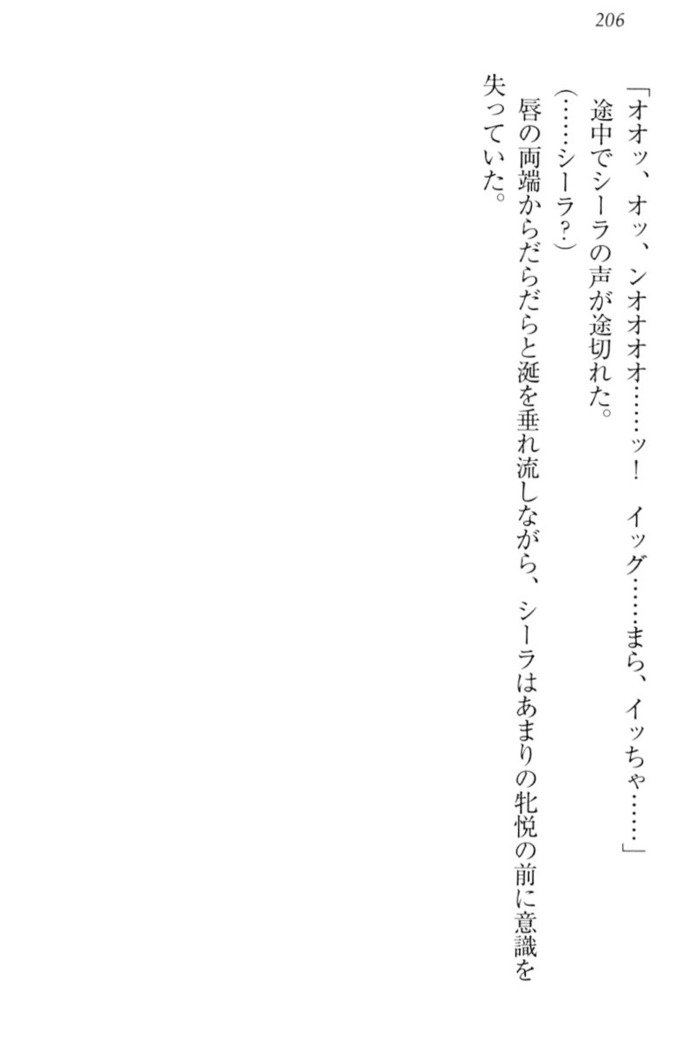 206
「オオッ、オッ、ンオオオオ……ッ！　イッグ……まら、イッちゃ……」
途中でシーラの声が途切れた。
(……シーラ？)
唇の両端からだらだらと涎を垂れ流しながら、シーラはあまりの牝悦の前に意識を
失っていた。